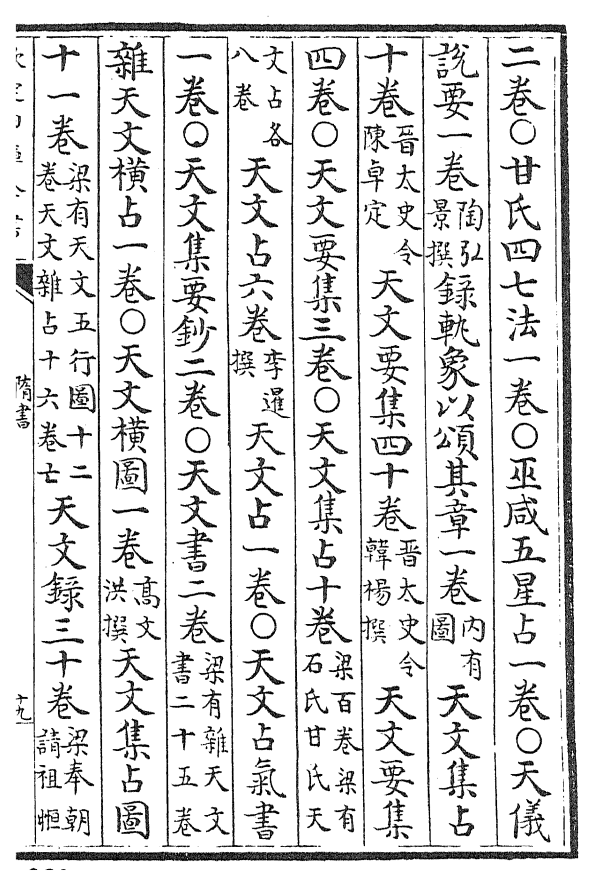 二卷○甘氏四七法一卷○巫咸五星占一卷○天儀
說要一卷陶弘景撰錄軌象以頌其章一卷内有圖天文集占
十卷晉太史令陳卓定天文要集四十卷晉太史令韓楊撰天文要集
四卷○天文要集三卷○天文集占十卷梁百卷梁有石氏甘氏天
文占各八卷天文占六卷李暹撰天文占一卷○天文占氣書
一卷○天文集要鈔二卷○天文書二卷梁有雜天文書二十五卷
雜天文橫占一卷○天文橫圖一卷高文洪撰天文集占圖
十一卷梁有天文五行圖十二卷天文雜占十六卷亡天文錄三十卷梁奉朝請祖暅
隋書
十九